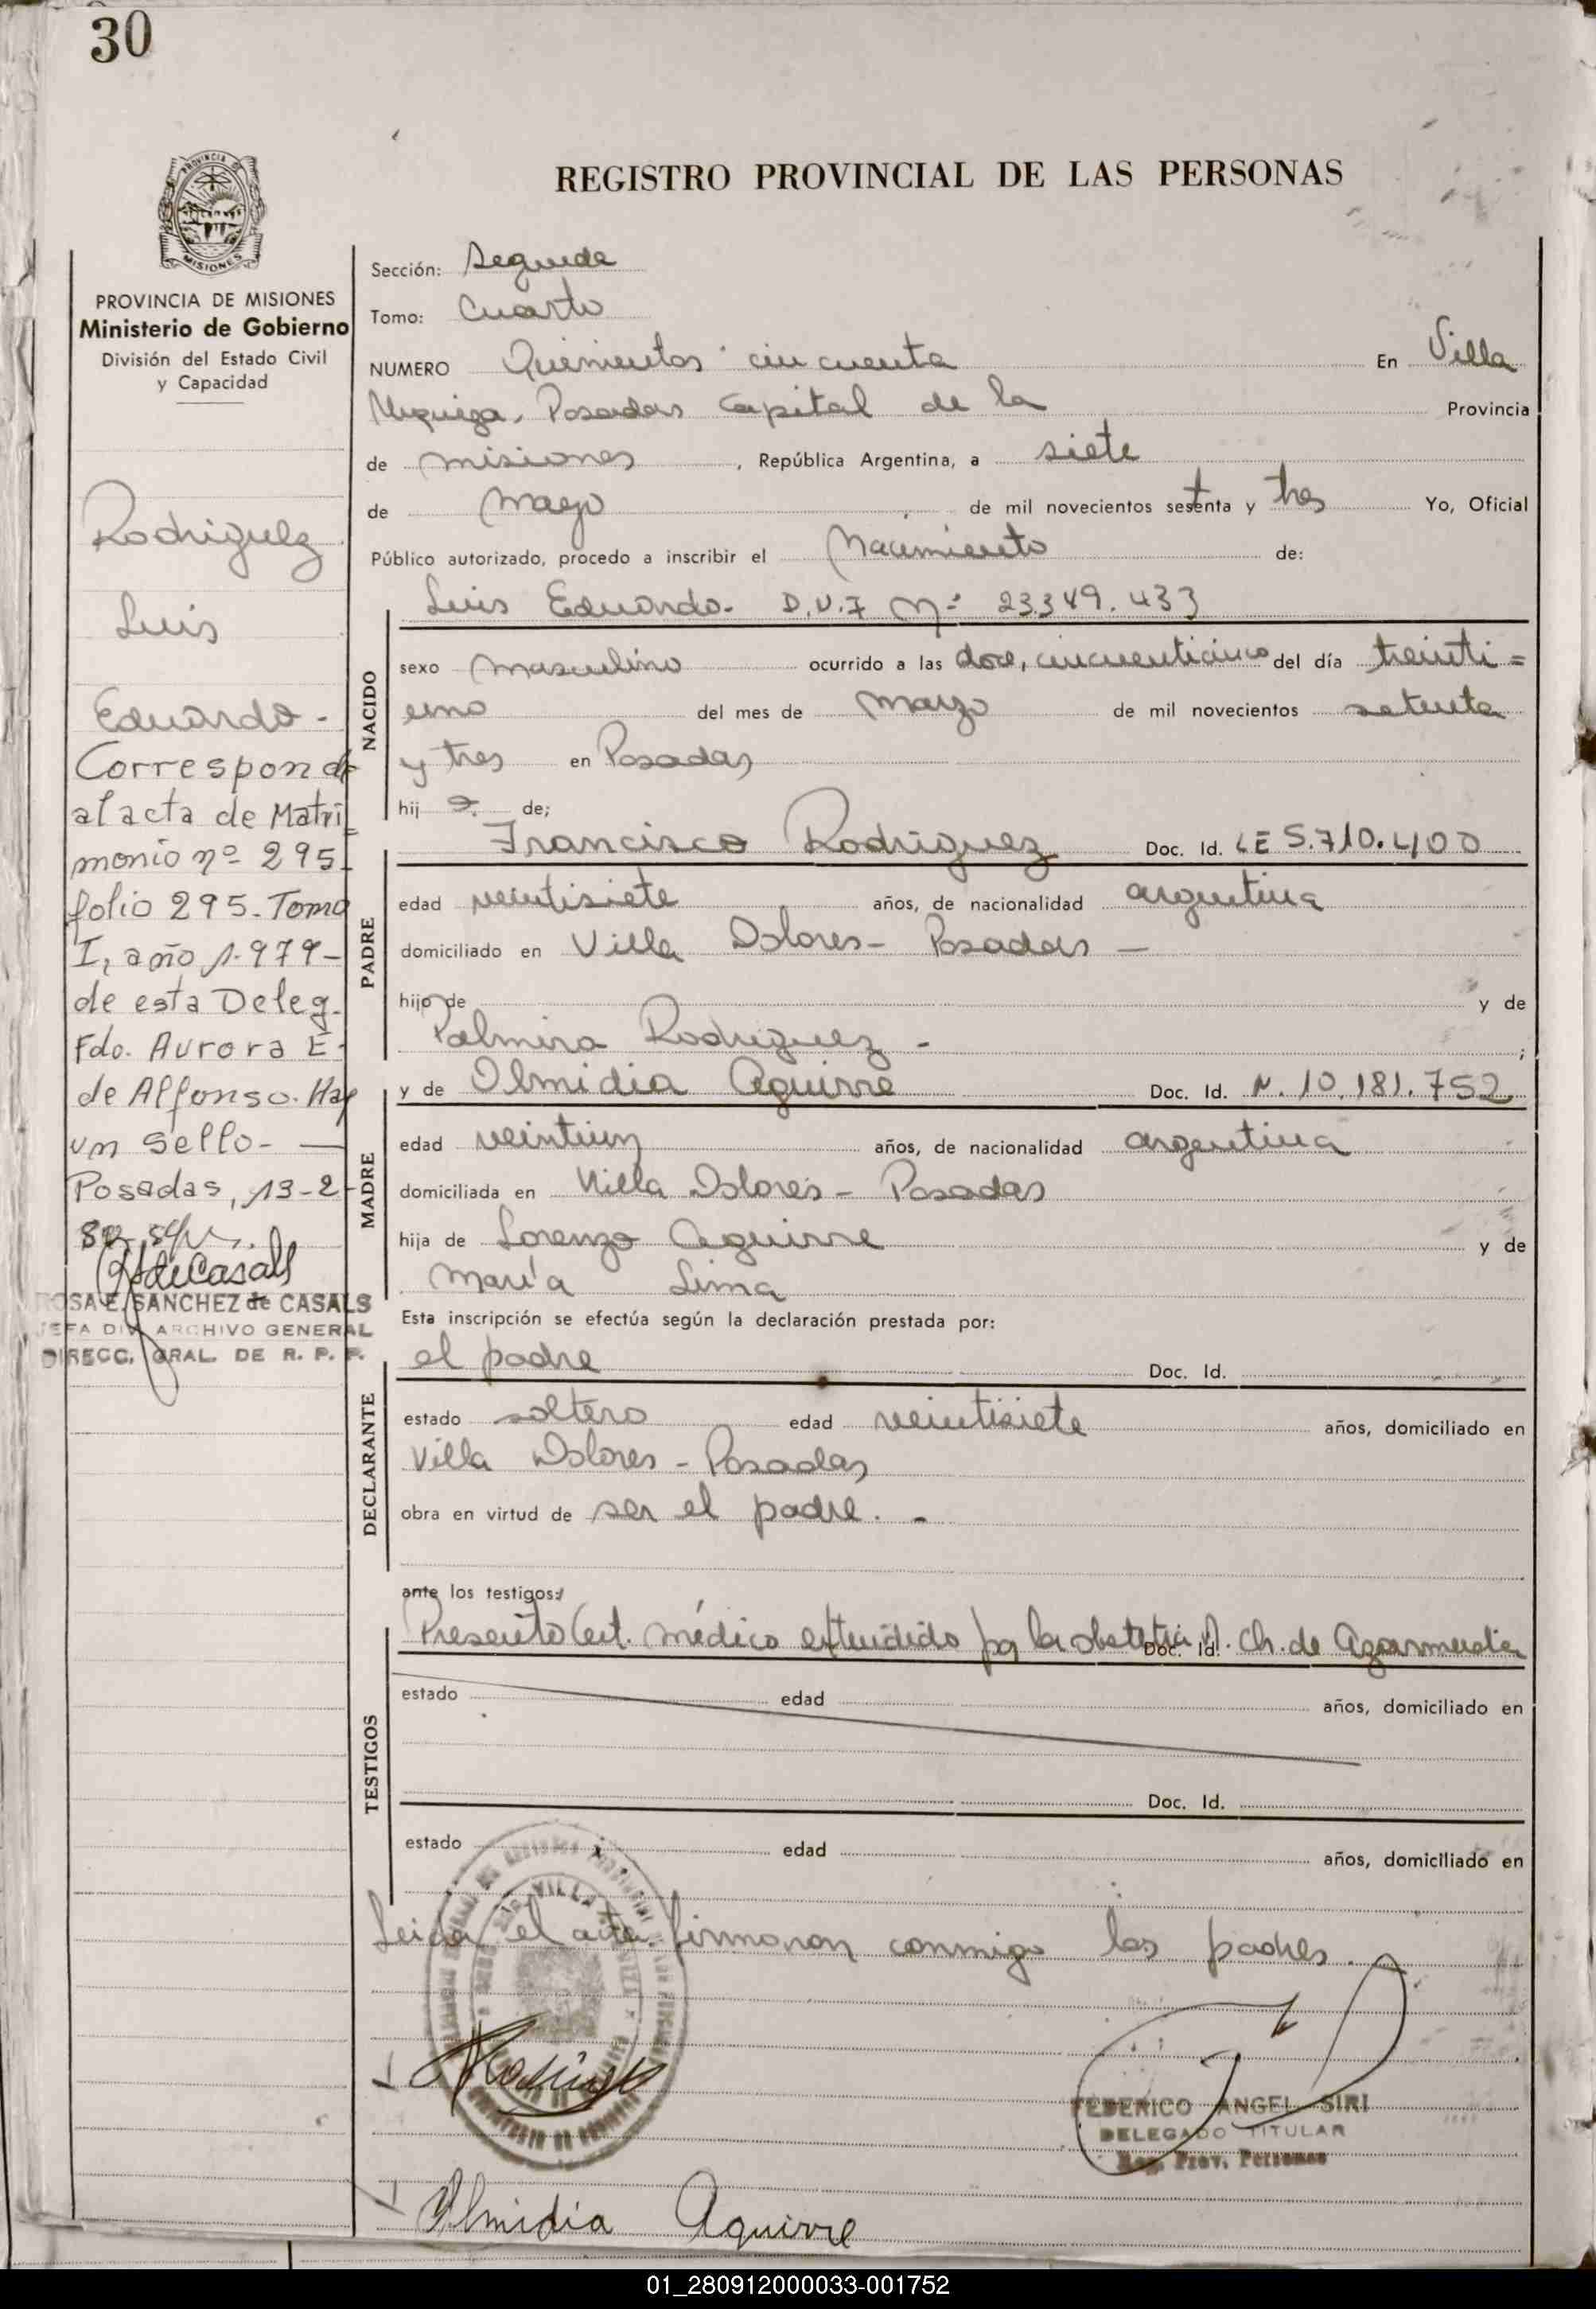 30
REGISTRO PROVINCIAL DE LAS PERSONAS
PROVINCIA DE
MISIONES
PROVINCIA DE MISIONES
Ministerio de Gobierno
División del Estado Civil
y Capacidad
Rodriguez
Luis
Eduardo -
Correspond
al acta de Matri
monio nº 295-
folio 295-Tomo
I, año 1.979-
de esta Deleg.
Fdo. Aurora E.
de Alfonso. Hay
un sello-
Posadas, 13-2-
ROSA E. SANCHEZ de CASALS
JEFA DIV. ARCHIVO GENERAL
DIRECC. GRAL. DE R. P. P.
Sección: Segunda
Tomo: Cuarto
NUMERO Quinientos cincuenta En Villa
Urquiza, Posadas Capital de la Provincia
de misiones, República Argentina, a siete
de mayo de mil novecientos setenta y tres Yo, Oficial
Público autorizado, procedo a inscribir el Nacimiento de:
Luis Eduardo- D.U.I Nº 23.349.433
NACIDO
sexo masculino ocurrido a las doce, cincuenticinco del día treinti=
uno del mes de marzo de mil novecientos setenta
y tres en Posadas
hijo de;
Francisco Rodriguez Doc. Id. LE 5.710.400
PADRE
edad veintisiete años, de nacionalidad argentina
domiciliado en Villa Dolores- Posadas -
hijo de y de
Palmira Rodriguez - ;
y de Olmidia Aguirre Doc. Id. N. 10.181.752
MADRE
edad veintiun años, de nacionalidad argentina
domiciliada en Villa Dolores- Posadas
hija de Lorenzo Aguirre y de
María Lima
Esta inscripción se efectúa según la declaración prestada por:
el padre Doc. Id.
DECLARANTE
estado soltero edad veintisiete años, domiciliado en
Villa Dolores - Posadas
obra en virtud de ser el padre. -
ante los testigos:
Presento Cert. médico extendido por la obstetra Doc. Id. Ch. de
TESTIGOS
estado edad años, domiciliado en
Doc. Id.
estado edad años, domiciliado en
Leida el acta firmaron conmigo los padres.
VILLA
FEDERICO ANGEL SIRI
DELEGADO TITULAR
Reg. Prov. Personas
Olmidia Aguirre
01_280912000033-001752